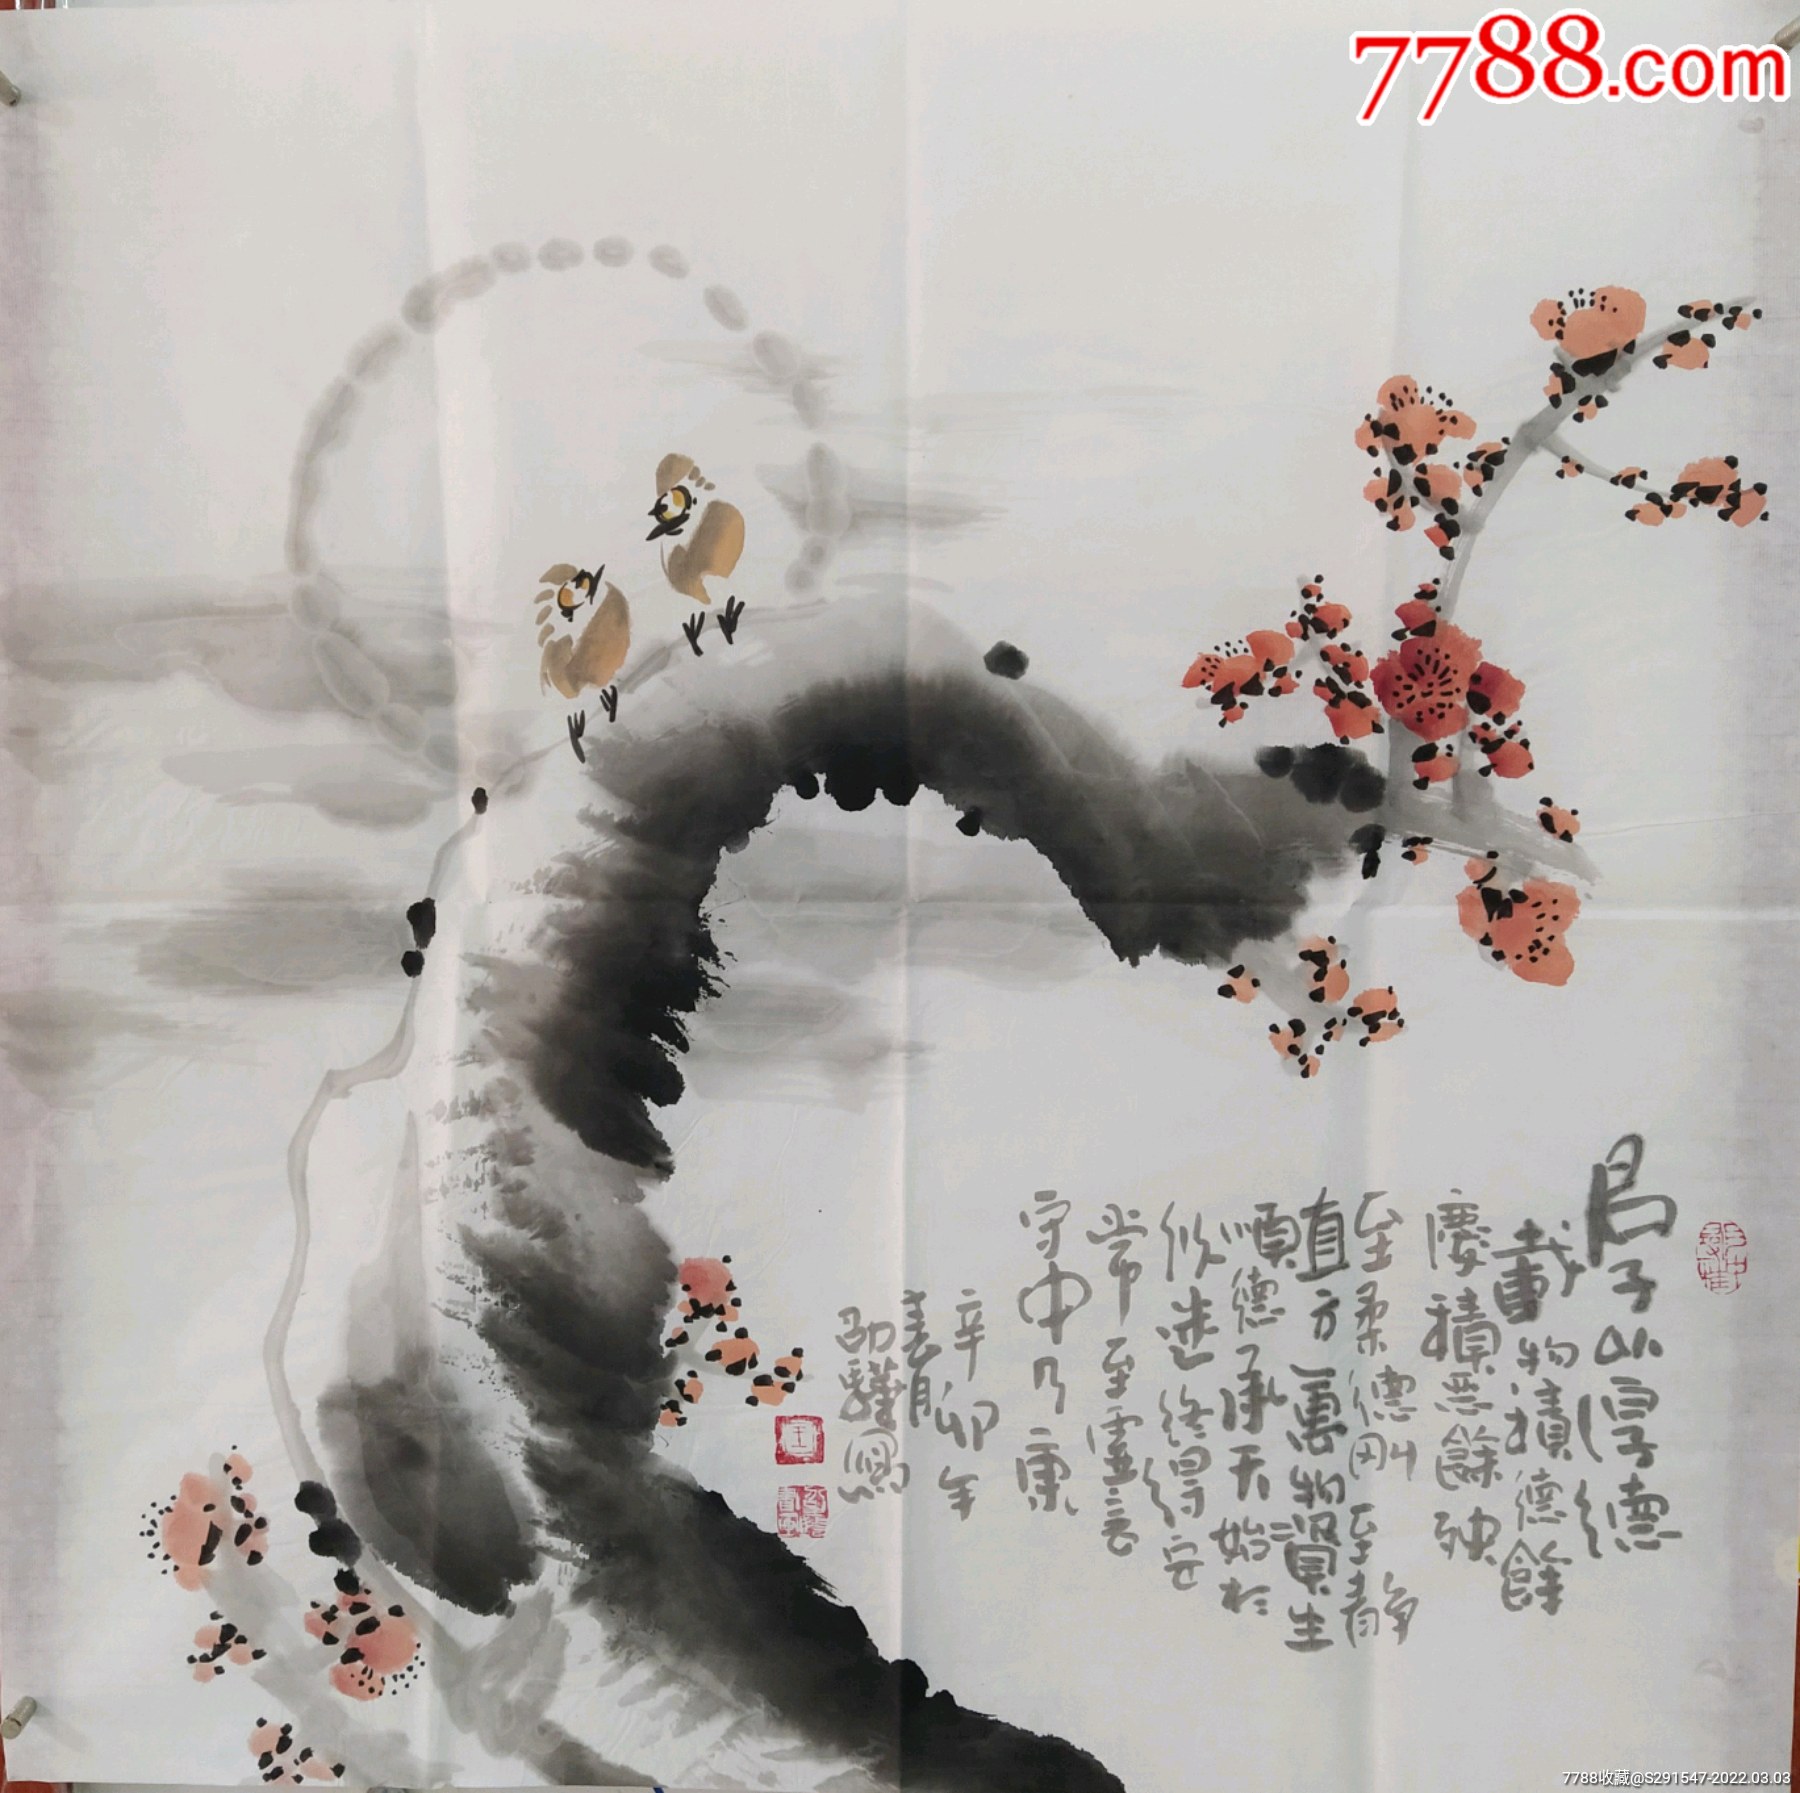 7788.com
君子以厚德
載物積德餘
慶積惡餘殃
至柔德剛至静
直方萬物資生
順德承天始於
似迷終得安
常至靈言
守中乃康
辛卯年
春月
邵驊寫
7788收藏@S291547-2022.03.03